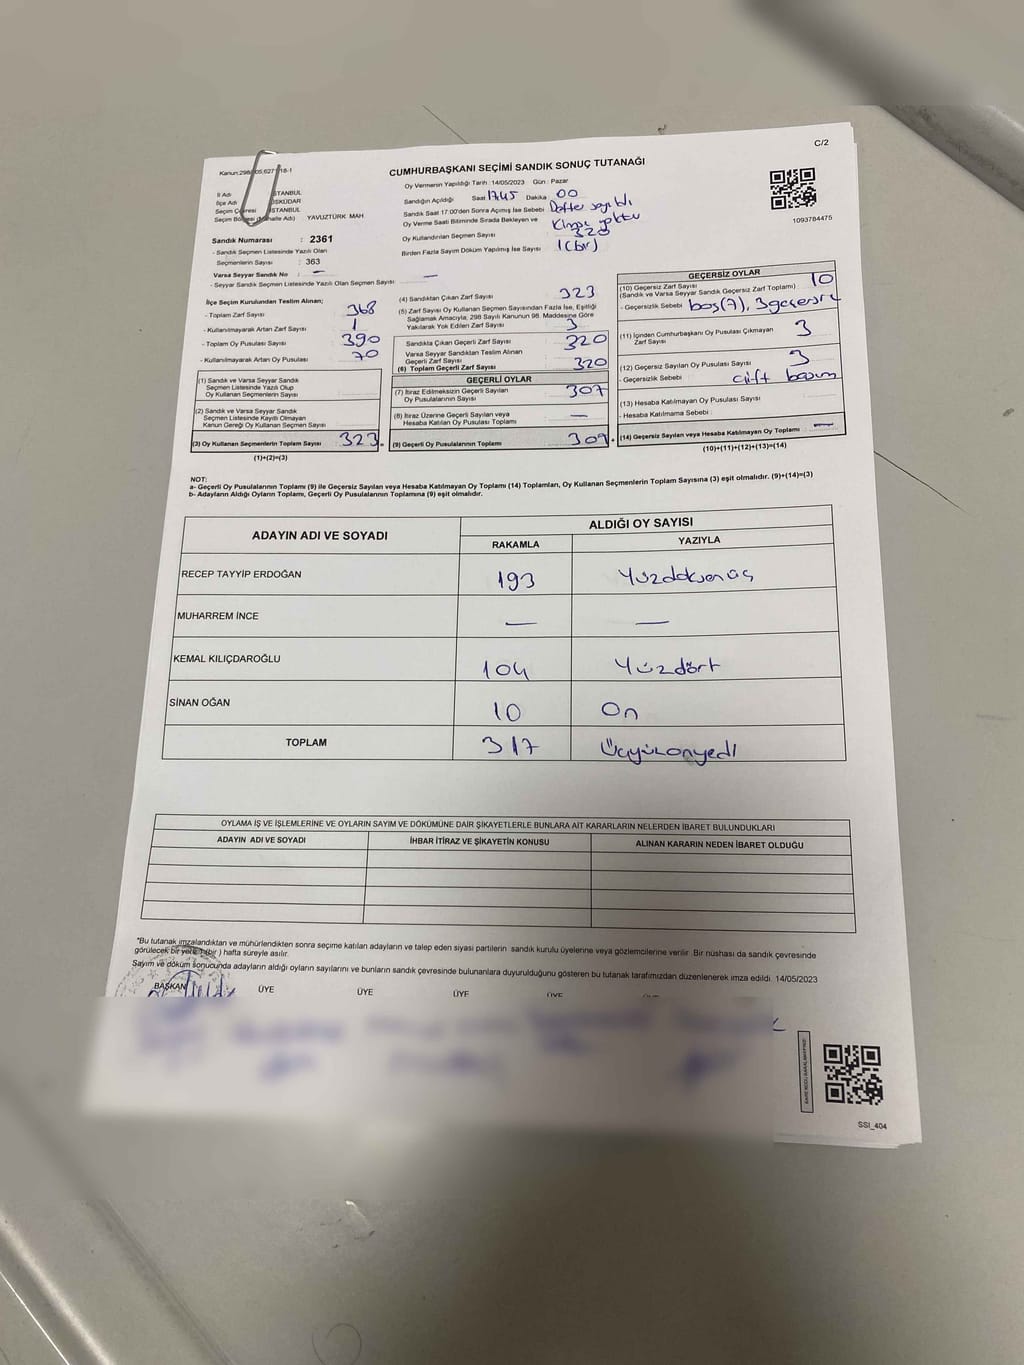 C/2
Kanun:298
18-1
CUMHURBAŞKANI SEÇİMİ SANDIK SONUÇ TUTANAĞI
İl Adı İSTANBUL
İlçe Adı ÜSKÜDAR
Seçim Çevresi İSTANBUL
Seçim Bölgesi (Mahalle Adı) YAVUZTÜRK MAH
Oy Vermenin Yapıldığı Tarih : 14/05/2023 Gün : Pazar
Sandığın Açıldığı Saat 17:45 Dakika 00
Sandık Saat 17:00'den Sonra Açılmış İse Sebebi Defter sayıldı
Oy Verme Saati Bitiminde Sırada Bekleyen ve Kimse yoktu
Oy Kullandırılan Seçmen Sayısı 323
Birden Fazla Sayım Döküm Yapılmış İse Sayısı 1(bir)
1093784475
Sandık Numarası : 2361
- Sandık Seçmen Listesinde Yazılı Olan
Seçmenlerin Sayısı : 363
Varsa Seyyar Sandık No : —
- Seyyar Sandık Seçmen Listesinde Yazılı Olan Seçmen Sayısı : —
İlçe Seçim Kurulundan Teslim Alınan;
- Toplam Zarf Sayısı 368
- Kullanılmayarak Artan Zarf Sayısı 1
- Toplam Oy Pusulası Sayısı 390
- Kullanılmayarak Artan Oy Pusulası 70
(1) Sandık ve Varsa Seyyar Sandık
Seçmen Listesinde Yazılı Olup
Oy Kullanan Seçmenlerin Sayısı
(2) Sandık ve Varsa Seyyar Sandık
Seçmen Listesinde Kayıtlı Olmayan
Kanun Gereği Oy Kullanan Seçmen Sayısı
(3) Oy Kullanan Seçmenlerin Toplam Sayısı 323
(1)+(2)=(3)
(4) Sandıktan Çıkan Zarf Sayısı 323
(5) Zarf Sayısı Oy Kullanan Seçmen Sayısından Fazla İse, Eşitliği
Sağlamak Amacıyla, 298 Sayılı Kanunun 98. Maddesine Göre
Yakılarak Yok Edilen Zarf Sayısı 3
Sandıkta Çıkan Geçerli Zarf Sayısı 320
Varsa Seyyar Sandıktan Teslim Alınan
Geçerli Zarf Sayısı
(6) Toplam Geçerli Zarf Sayısı 320
GEÇERLİ OYLAR
(7) İtiraz Edilmeksizin Geçerli Sayılan
Oy Pusulalarının Sayısı 307
(8) İtiraz Üzerine Geçerli Sayılan veya
Hesaba Katılan Oy Pusulası Toplamı —
(9) Geçerli Oy Pusulalarının Toplamı 307
GEÇERSİZ OYLAR
(10) Geçersiz Zarf Sayısı 10
(Sandık ve Varsa Seyyar Sandık Geçersiz Zarf Toplamı)
- Geçersizlik Sebebi boş(7), 3 geçersiz
(11) İçinden Cumhurbaşkanı Oy Pusulası Çıkmayan
Zarf Sayısı 3
(12) Geçersiz Oy Pusulası Sayısı 3
- Geçersizlik Sebebi çift basım
(13) Hesaba Katılmayan Oy Pusulası Sayısı
- Hesaba Katılmama Sebebi :
(14) Geçersiz Sayılan veya Hesaba Katılmayan Oy Toplamı —
(10)+(11)+(12)+(13)=(14)
NOT:
a- Geçerli Oy Pusulalarının Toplamı (9) ile Geçersiz Sayılan veya Hesaba Katılmayan Oy Toplamı (14) Toplamları, Oy Kullanan Seçmenlerin Toplam Sayısına (3) eşit olmalıdır. (9)+(14)=(3)
b- Adayların Aldığı Oyların Toplamı, Geçerli Oy Pusulalarının Toplamına (9) eşit olmalıdır.
ADAYIN ADI VE SOYADI
ALDIĞI OY SAYISI
RAKAMLA YAZIYLA
RECEP TAYYİP ERDOĞAN 193
MUHARREM İNCE — —
KEMAL KILIÇDAROĞLU 104 Yüzdört
SİNAN OĞAN 10 On
TOPLAM 317 Üçyüzonyedi
OYLAMA İŞ VE İŞLEMLERİNE VE OYLARIN SAYIM VE DÖKÜMÜNE DAİR ŞİKAYETLERLE BUNLARA AİT KARARLARIN NELERDEN İBARET BULUNDUKLARI
ADAYIN ADI VE SOYADI İHBAR İTİRAZ VE ŞİKAYETİN KONUSU ALINAN KARARIN NEDEN İBARET OLDUĞU
*Bu tutanak imzalandıktan ve mühürlendikten sonra seçime katılan adayların ve talep eden siyasi partilerin sandık kurulu üyelerine veya gözlemcilerine verilir. Bir nüshası da sandık çevresinde
görülecek bir yere 1 (bir ) hafta süreyle asılır.
Sayım ve döküm sonucunda adayların aldığı oyların sayılarını ve bunların sandık çevresinde bulunanlara duyurulduğunu gösteren bu tutanak tarafımızdan düzenlenerek imza edildi. 14/05/2023
BAŞKAN ÜYE ÜYE ÜYE ÜYE ÜYE
SSI_404